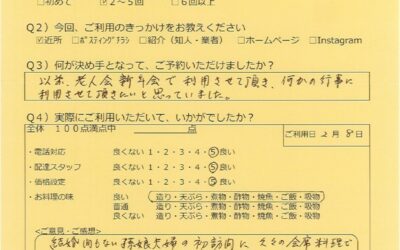 □初めて ☑2～5回 □6回以上
Q2）今回、ご利用のきっかけをお教えください
☑近所 □ﾎﾟｽﾃｨﾝｸﾞﾁﾗｼ □紹介（知人・業者） □ホームページ □Instagram
Q3）何が決め手となって、ご予約いただけましたか？
以来、老人会新年会で利用させて頂き、何かの行事に
利用させて頂きたいと思っていました。
Q4）実際にご利用いただいて、いかがでしたか？
全体 １００点満点中 点
ご利用日 2月 8日
・電話対応 良くない 1・2・3・4・5 良い
・配達スタッフ 良くない 1・2・3・4・5 良い
・価格設定 良くない 1・2・3・4・5 良い
・お料理の味 良い 造り・天ぷら・煮物・酢物・焼魚・ご飯・吸物
普通 造り・天ぷら・煮物・酢物・焼魚・ご飯・吸物
良くない 造り・天ぷら・煮物・酢物・焼魚・ご飯・吸物
＜ご意見・ご感想＞
結婚間もない孫娘夫婦の初訪問に 会席料理で